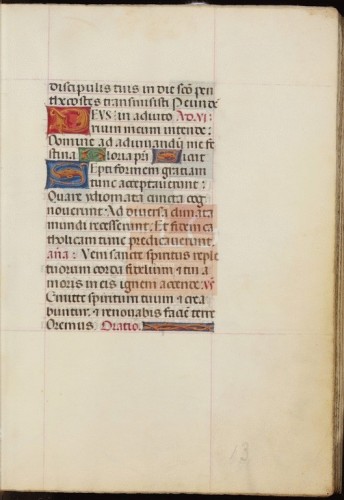 discipulis tuis in die sco pen
thecostes transmisisti Per unde
DEVS in adiuto AD.VI:
rium meum intende:
Domine ad adiuuandum me fe
stina Gloria pri Sicut
Septiformem gratiam
tunc acceptauerunt:
Quare ydiomata cuncta cog
nouerunt: Ad diuersa climata
mundi recesserunt. Et fidem ca
tholicam tunc predicauerunt.
aña: Veni sancte spiritus reple
tuorum corda fidelium & tui a
moris in eis ignem accende: V
Emitte spiritum tuum & crea
buntur. & renouabis faciem terre
Oremus. Oratio.
13